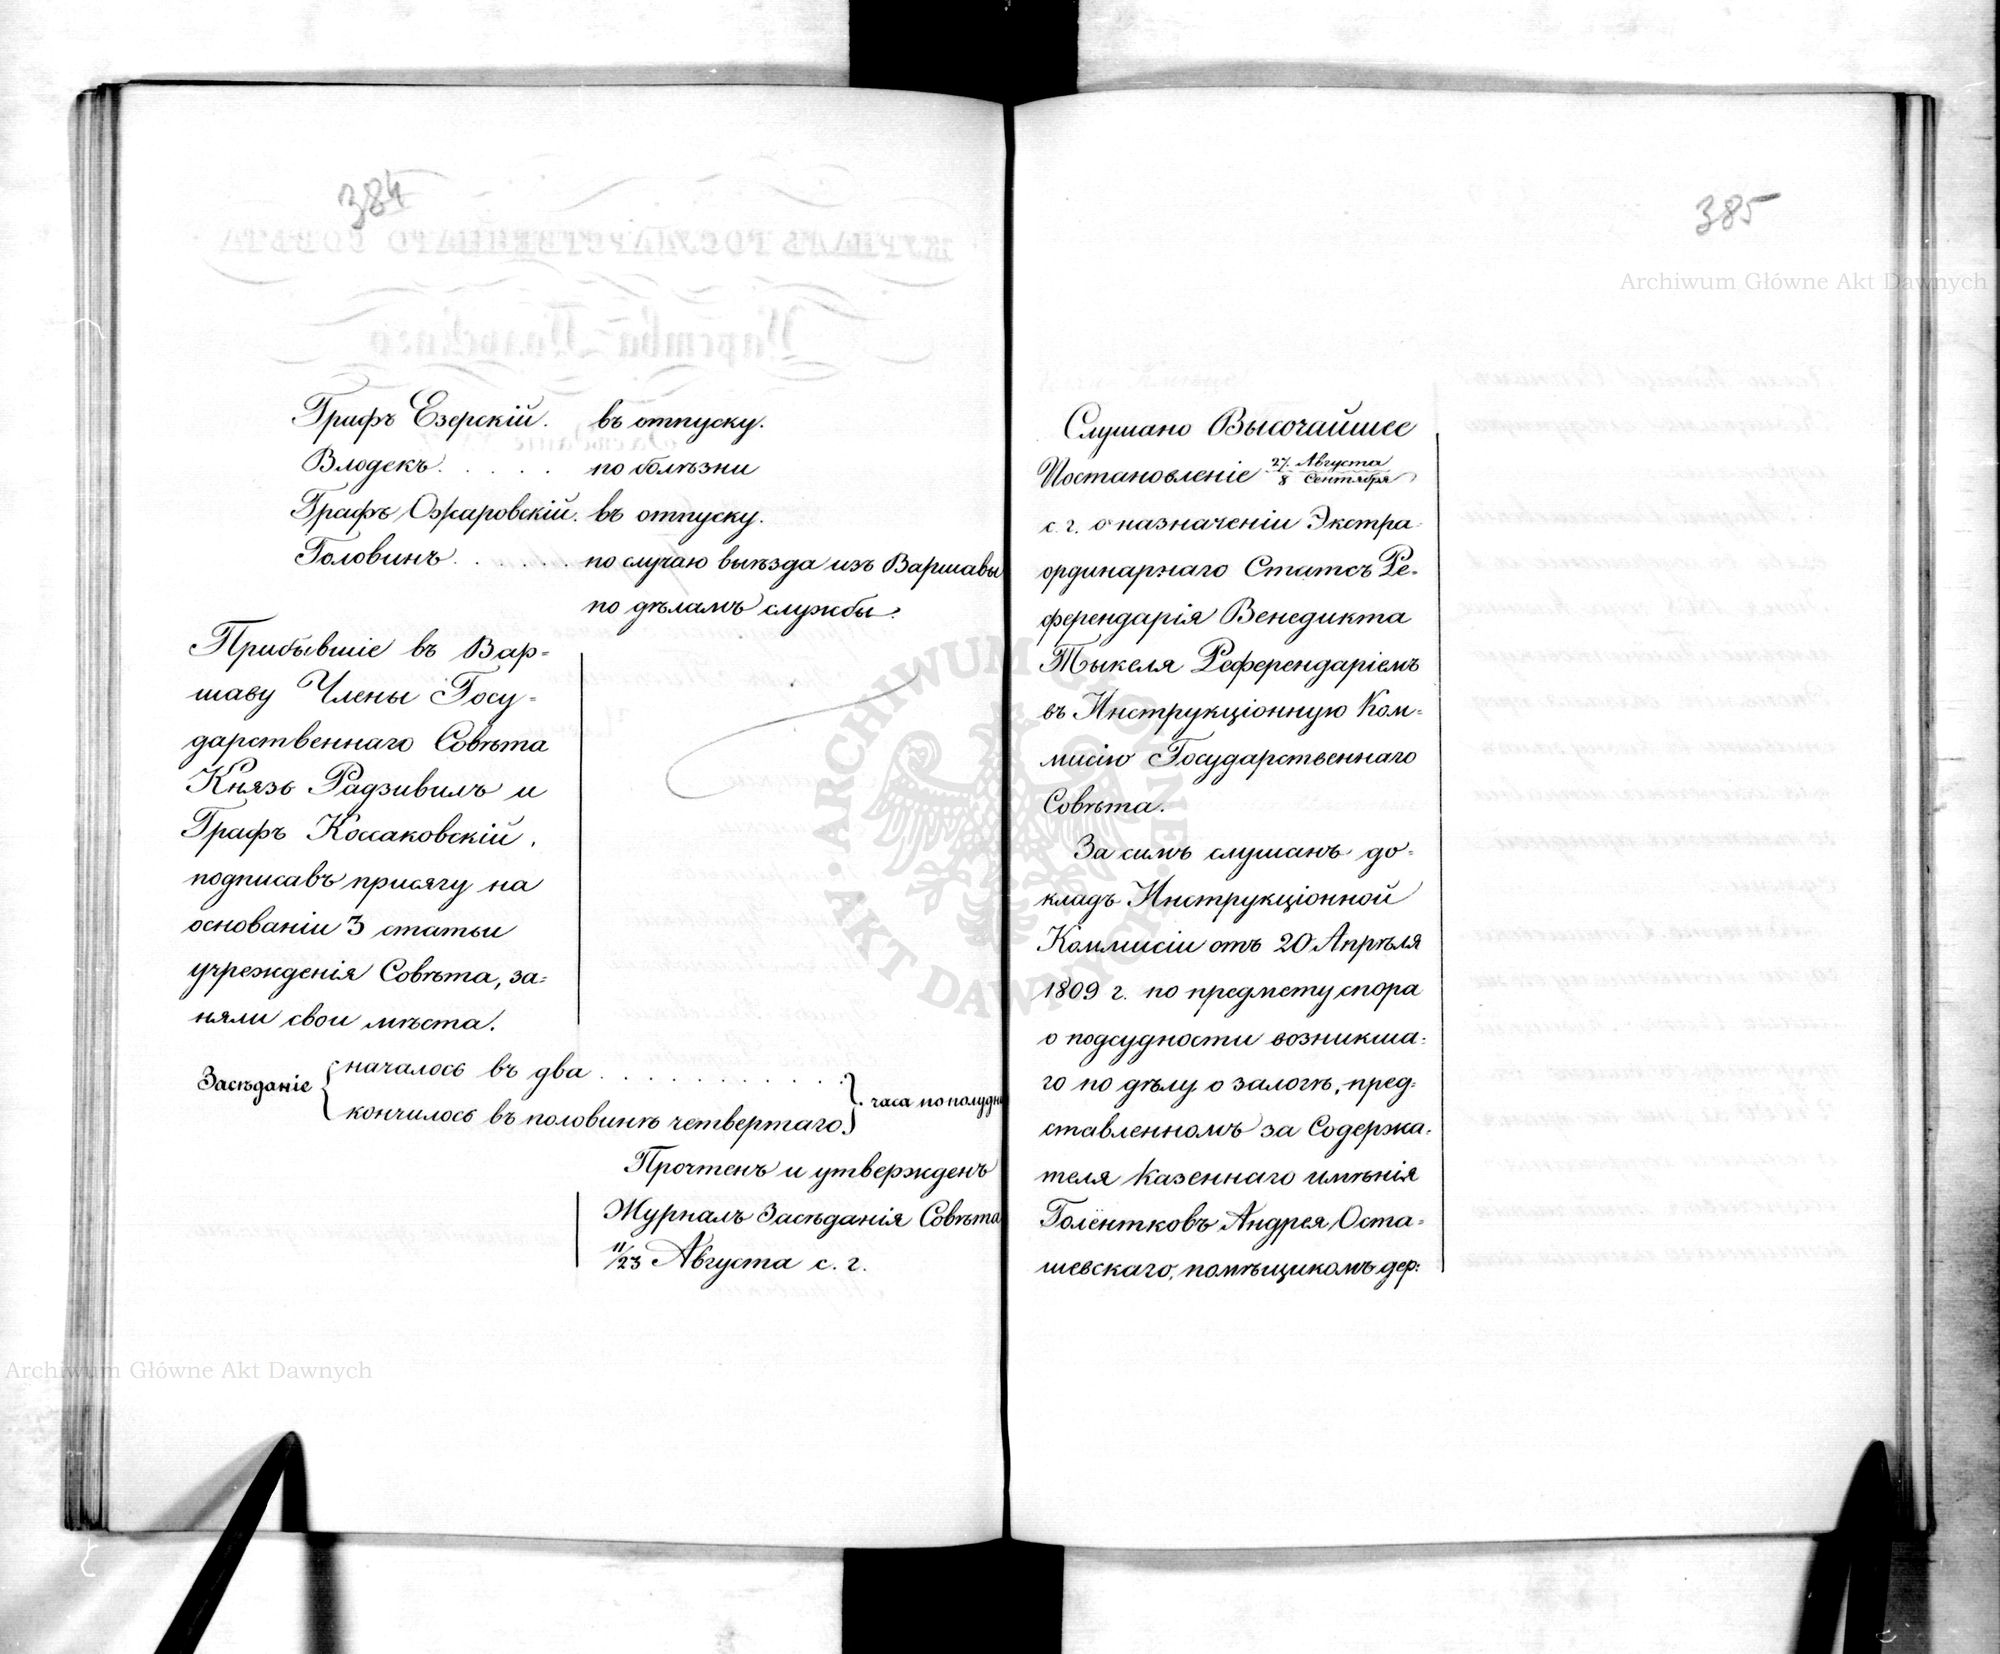 384
Графъ Езерскій. въ отпуску.
Влодекъ. . . . . по болѣзни
Графъ Ожаровскій. въ отпуску.
Головинъ. . . . . . по случаю выѣзда изъ Варшавы
по дѣламъ службы.
Прибывшіе въ Вар-
шаву Члены Госу-
дарственнаго Совѣта
Князь Радзивилъ и
Графъ Коссаковскій,
подписавъ присягу на
основаніи 3 статьи
учрежденія Совѣта, за-
няли свои мѣста.
Засѣданіе { началось въ два . . . . . . . . . . . } часа по полудни
кончилось въ половинѣ четвертаго
Прочтенъ и утвержденъ
Журналъ Засѣданія Совѣта
11/23 Августа с. г.
385
Слушано Высочайшее
Постановленіе 27 Августа / 8 Сентября
с. г. о назначеніи Экстра-
ординарнаго Статсъ Ре-
ферендарія Венедикта
Тыкеля Референдаріемъ
въ Инструкціонную Ком-
мисію Государственнаго
Совѣта.
За симъ слушанъ до-
кладъ Инструкціонной
Коммисіи отъ 20 Апрѣля
1809 г. по предмету спора
о подсудности возникша-
го по дѣлу о залогѣ, пред-
ставленномъ за Содержа-
теля Казеннаго имѣнія
Голёнтковъ Андрея Оста-
шевскаго, помѣщикомъ дер-
Archiwum Główne Akt Dawnych
Archiwum Główne Akt Dawnych
ARCHIWUM GŁÓWNE AKT DAWNYCH